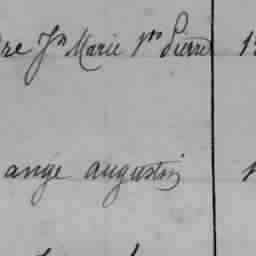 re Jn Marie Vr Pierre 1
ange augustin 1